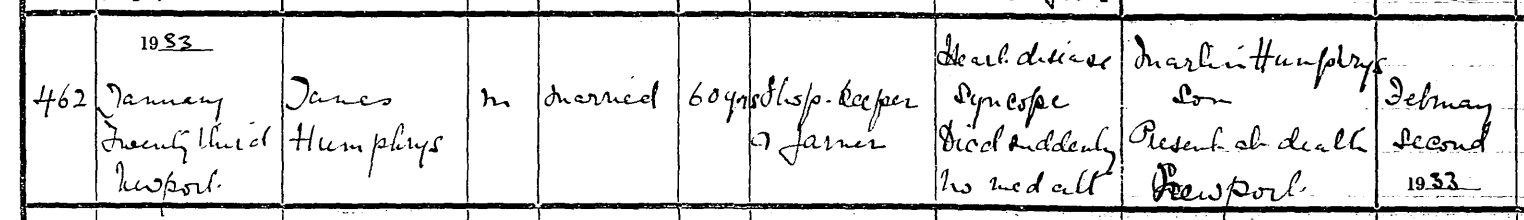 1933
462
January
Twenty third
Newport.
James
Humphrys
m
Married
60 yrs
Shop-Keeper
& farmer
Heart disease
Syncope
Died suddenly
No med att
Martin Humphrys
Son
Present at death
Newport.
February
Second
1933